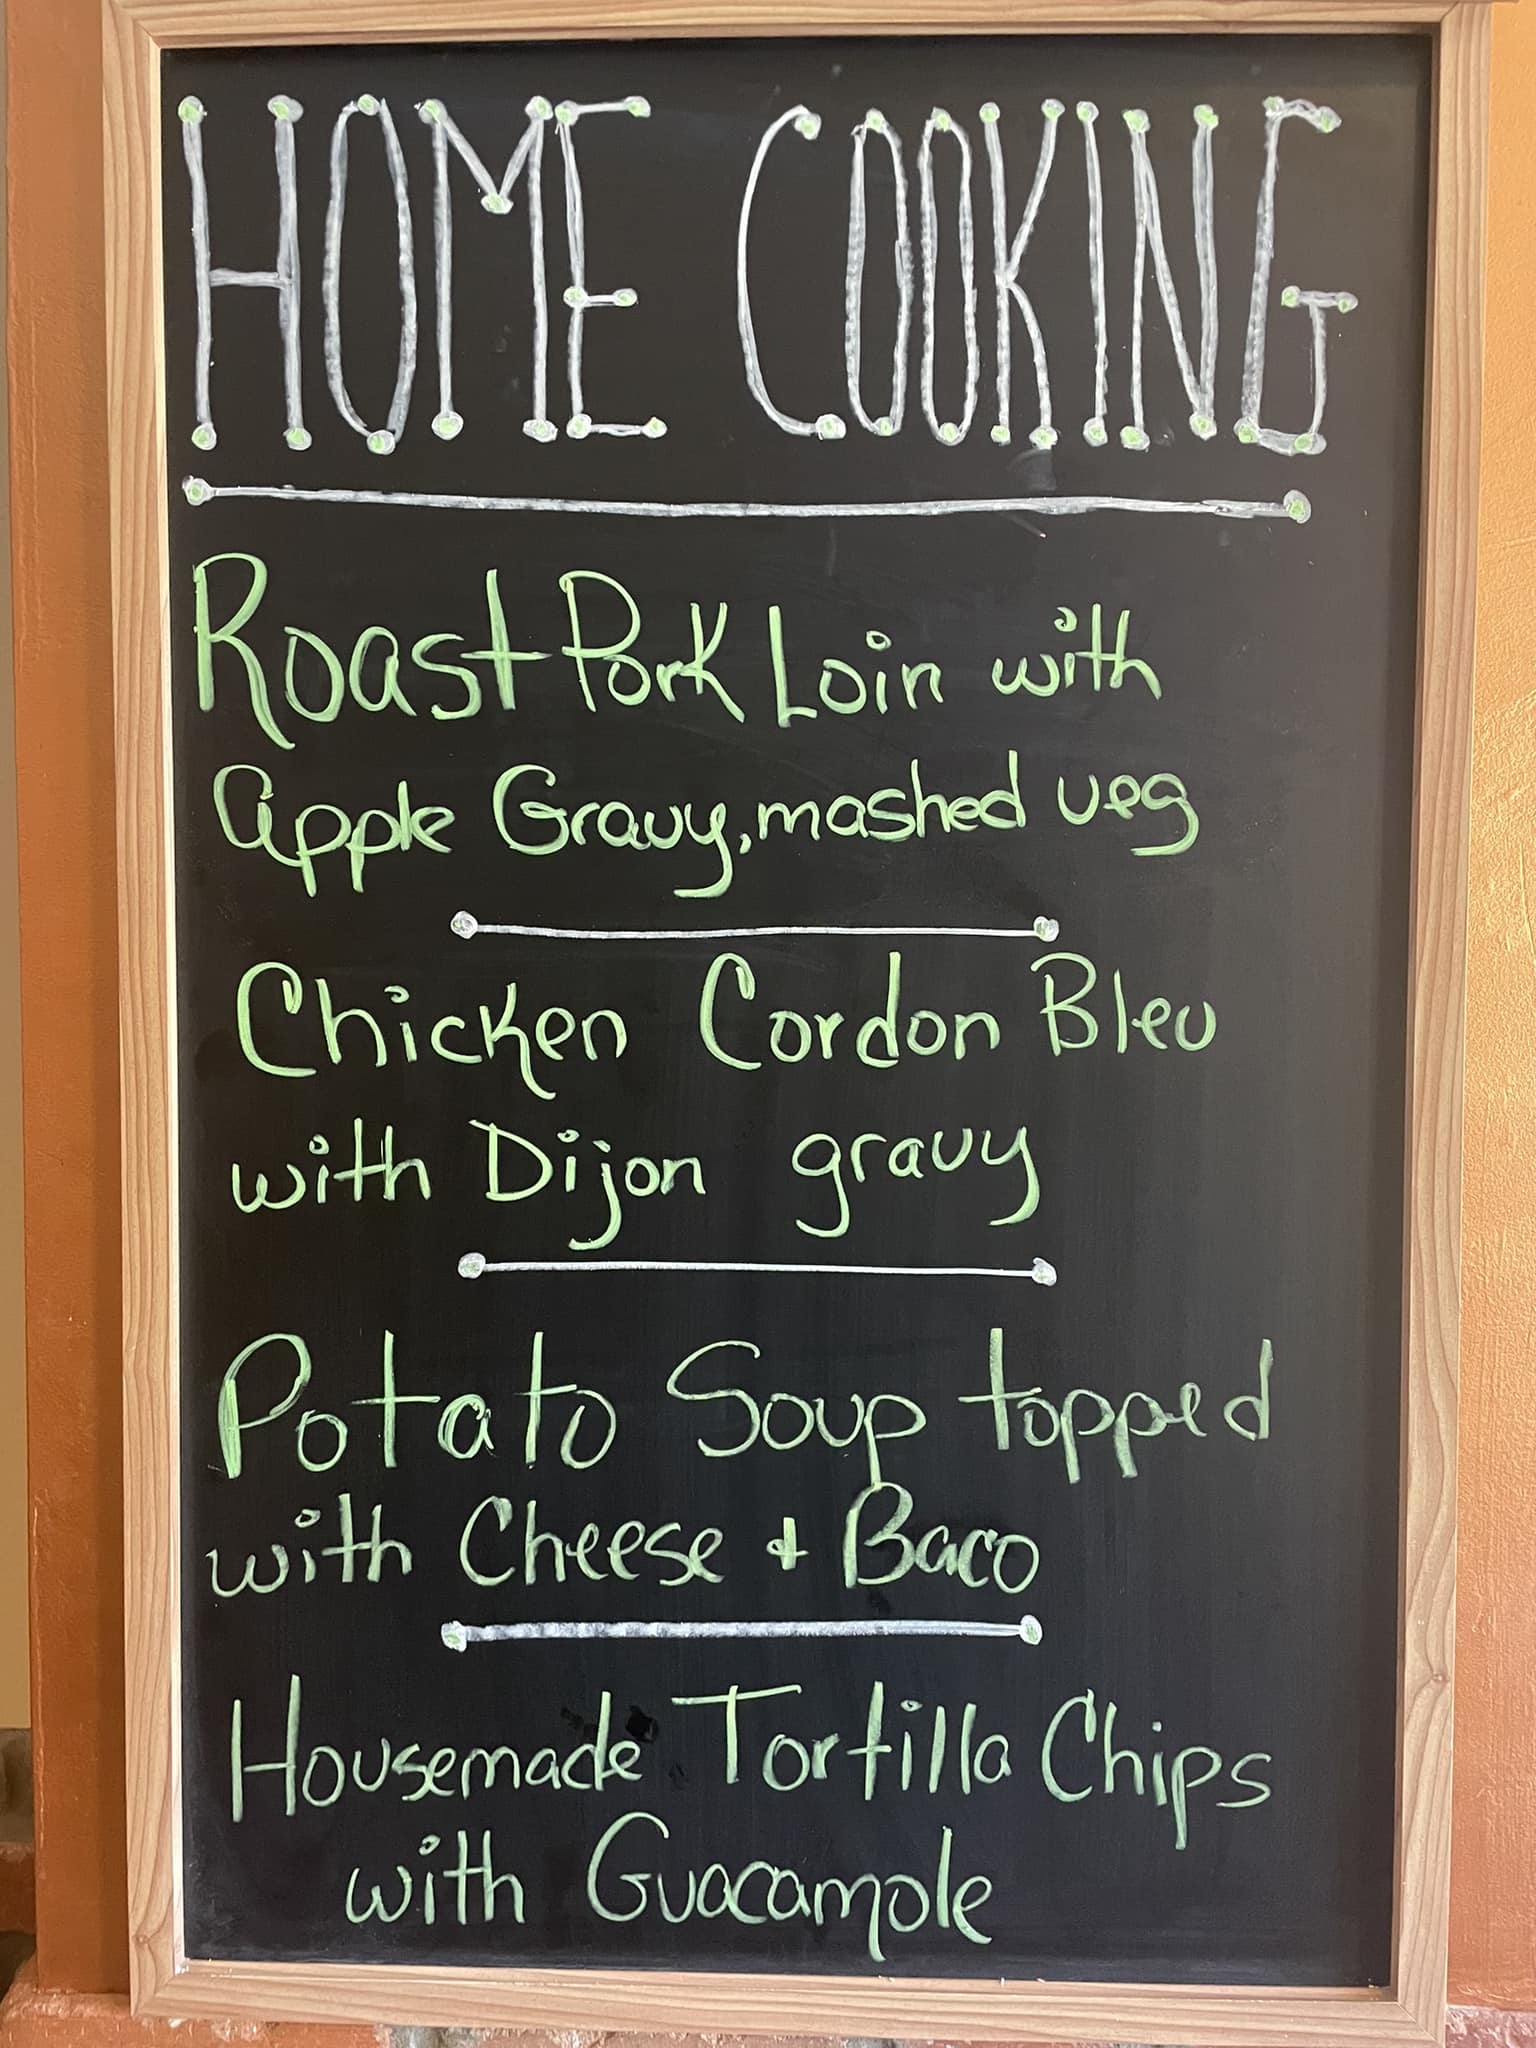 HOME COOKING
Roast Pork Loin with
Apple Gravy, mashed veg
Chicken Cordon Bleu
with Dijon gravy
Potato Soup topped
with Cheese + Baco
Housemade Tortilla Chips
with Guacamole